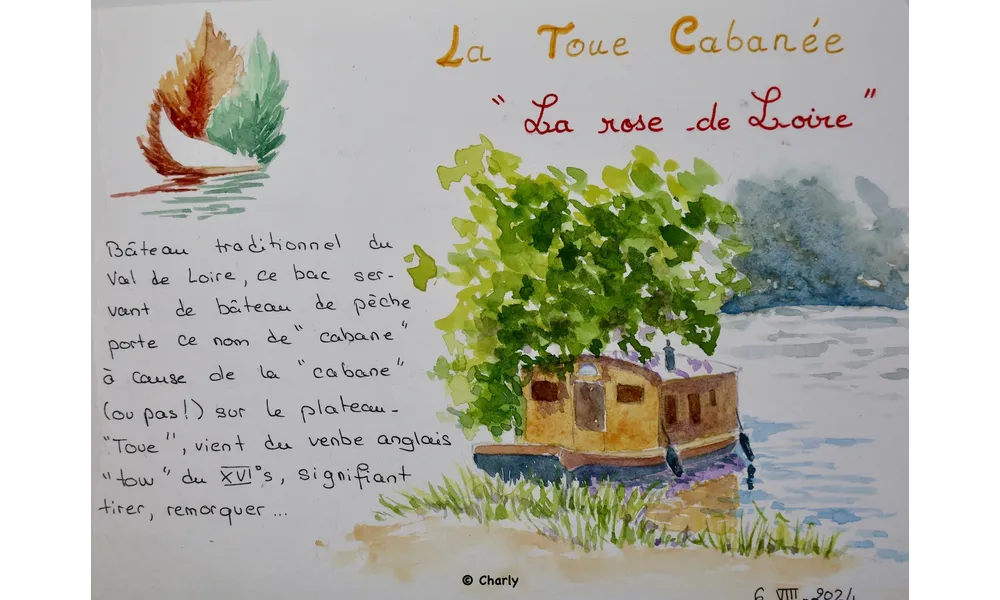 La Toue Cabanée
"La rose de Loire"
Bâteau traditionnel du
Val de Loire, ce bac ser-
vant de bâteau de pêche
porte ce nom de "cabane"
à cause de la "cabane"
(ou pas!) sur le plateau-
"Toue", vient du verbe anglais
"tow" du XVI°s, signifiant
tirer, remorquer...
© Charly
6 VIII-2024